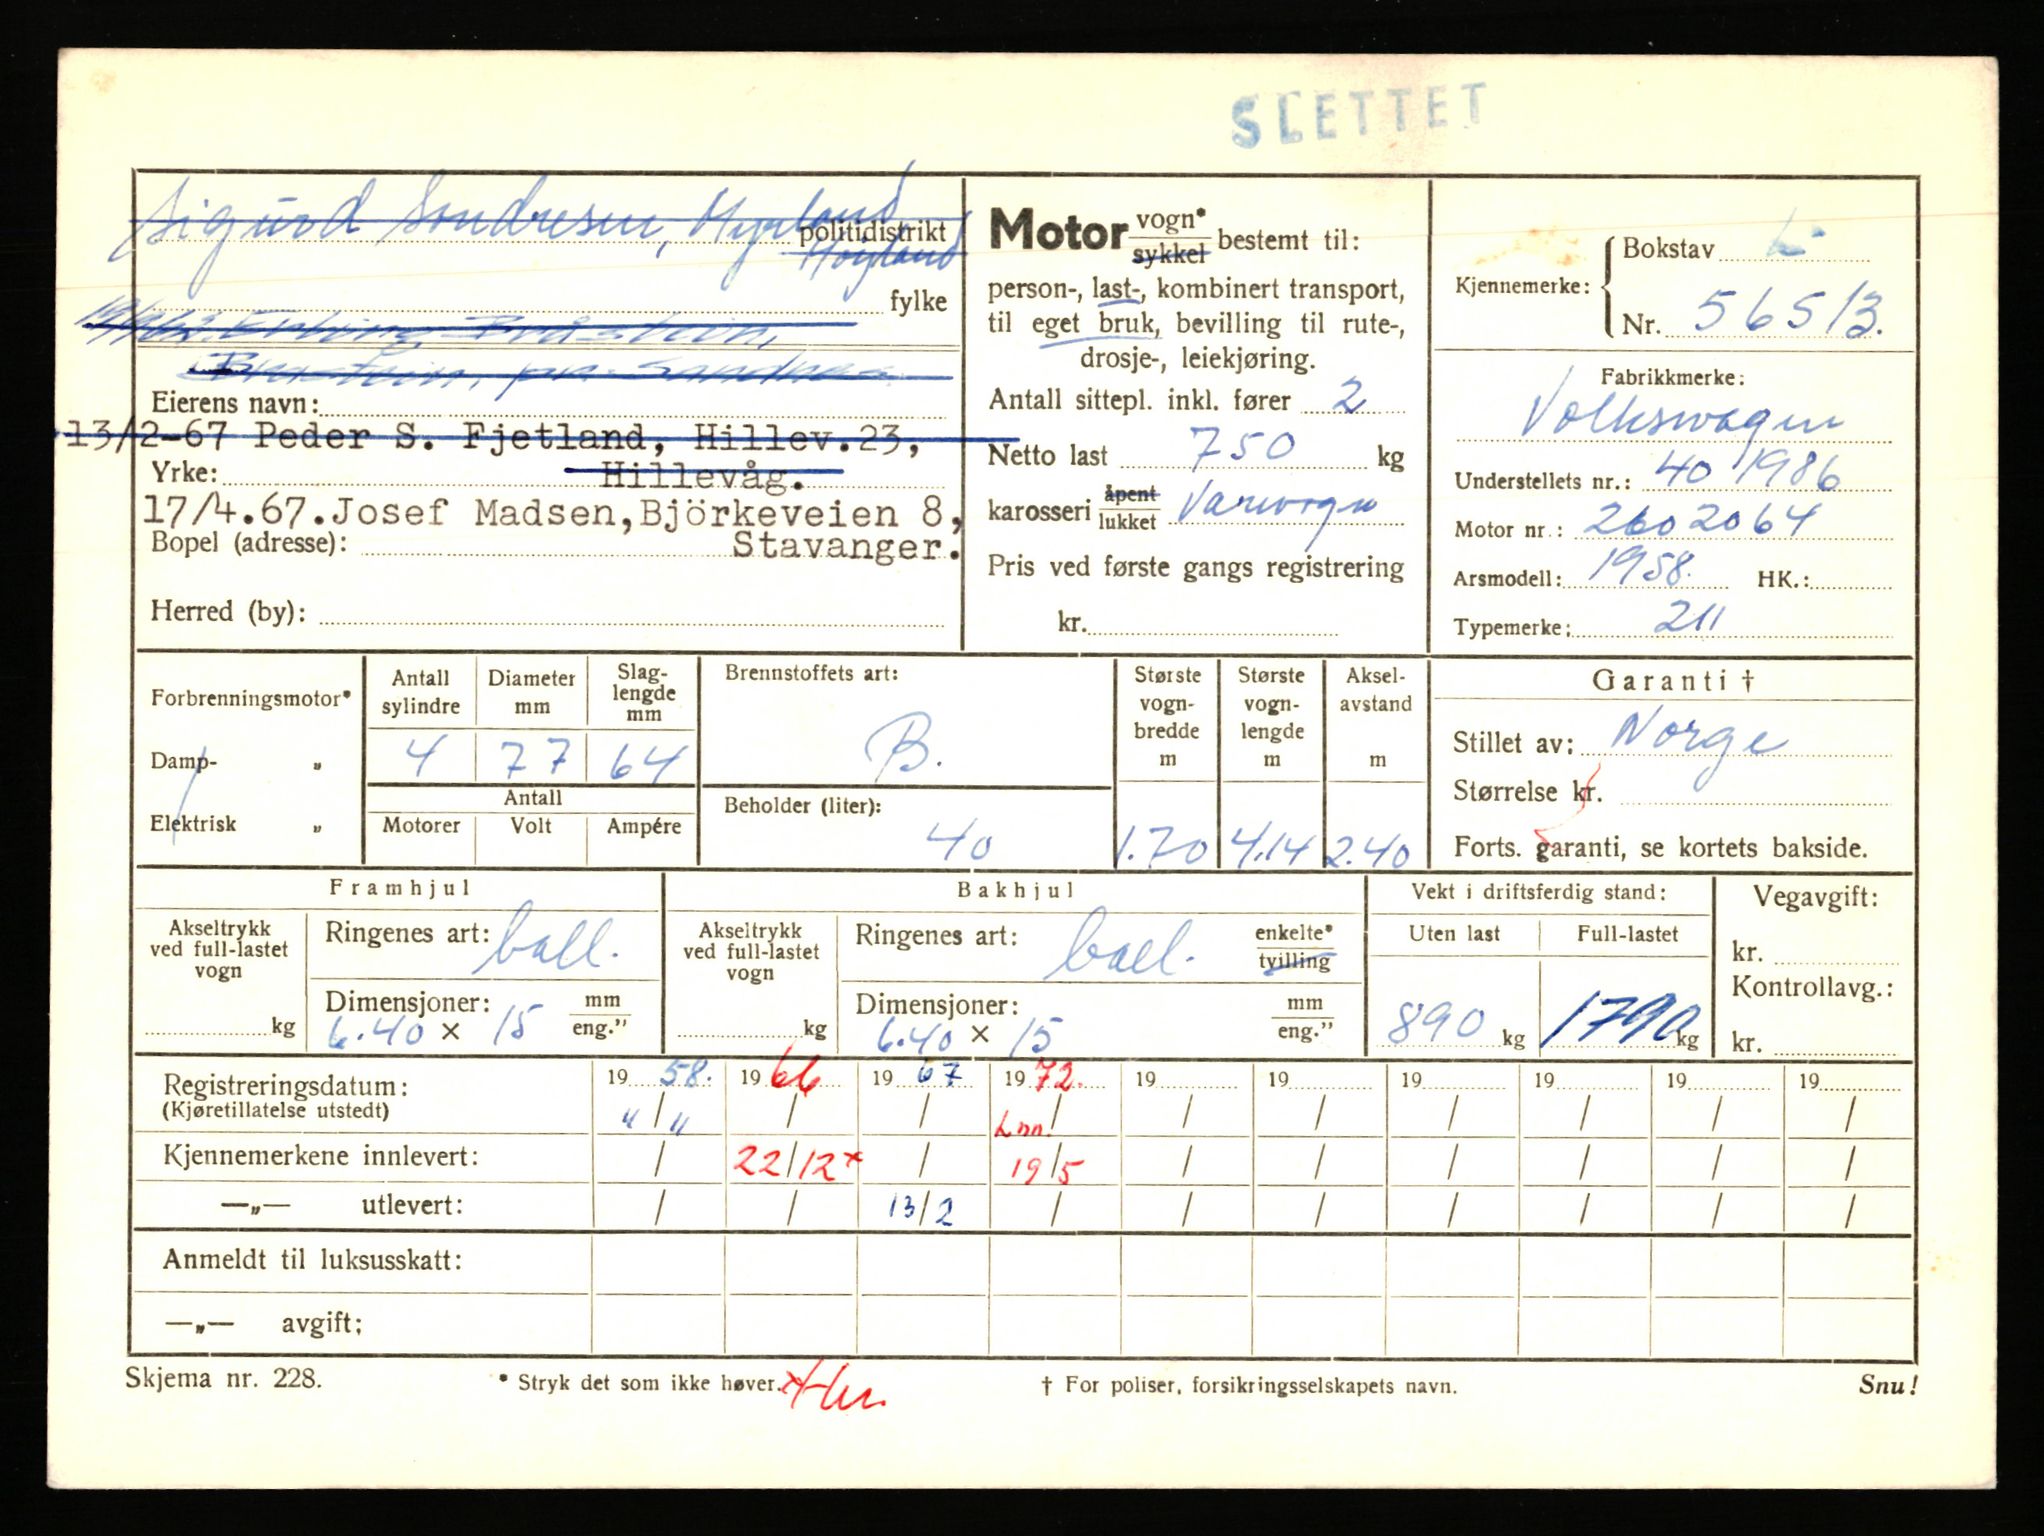 SLETTET
Sigurd Sondresen, Myrland
politidistrikt
Høyland
fylke
Eierens navn:
13/2-67 Peder S. Fjetland, Hillev.23,
Yrke: Hillevåg.
17/4.67.Josef Madsen,Björkeveien 8,
Bopel (adresse): Stavanger.
Herred (by):
Motor vogn* sykkel bestemt til:
person-, last-, kombinert transport,
til eget bruk, bevilling til rute-,
drosje-, leiekjøring.
Antall sittepl. inkl. fører 2
Netto last 750 kg
karosseri åpent lukket Varevogn
Pris ved første gangs registrering
kr.
Kjennemerke: Bokstav L
Nr. 56513.
Fabrikkmerke:
Volkswagen
Understellets nr.: 401986
Motor nr.: 2602064
Arsmodell: 1958. HK.:
Typemerke: 211
Forbrenningsmotor*
Damp- „
Elektrisk „
Antall sylindre
Diameter mm
Slag-lengde mm
4 77 64
Antall
Motorer Volt Ampére
Brennstoffets art:
B.
Beholder (liter):
40
Største vogn-bredde m
1.70
Største vogn-lengde m
4.14
Aksel-avstand m
2.40
Garanti †
Stillet av: Norge
Størrelse kr.
Forts. garanti, se kortets bakside.
Framhjul
Akseltrykk ved full-lastet vogn
kg
Ringenes art: ball.
Dimensjoner: mm
6.40 × 15 eng.”
Bakhjul
Akseltrykk ved full-lastet vogn
kg
Ringenes art: ball. enkelte* tvilling
Dimensjoner: mm
6.40 × 15 eng.”
Vekt i driftsferdig stand:
Uten last Full-lastet
890 kg 1790 kg
Vegavgift:
kr.
Kontrollavg.:
kr.
Registreringsdatum: 19 58. 19 66 19 67 19 72. 19 19 19 19 19 19
(Kjøretillatelse utstedt) " / " / / / / / / / / /
Kjennemerkene innlevert: / 22/12* / 19/5 / / / / / /
—„— utlevert: / / 13/2 / / / / / / /
Anmeldt til luksusskatt:
—„— avgift;
Skjema nr. 228.
* Stryk det som ikke høver.
† For poliser, forsikringsselskapets navn.
Snu!